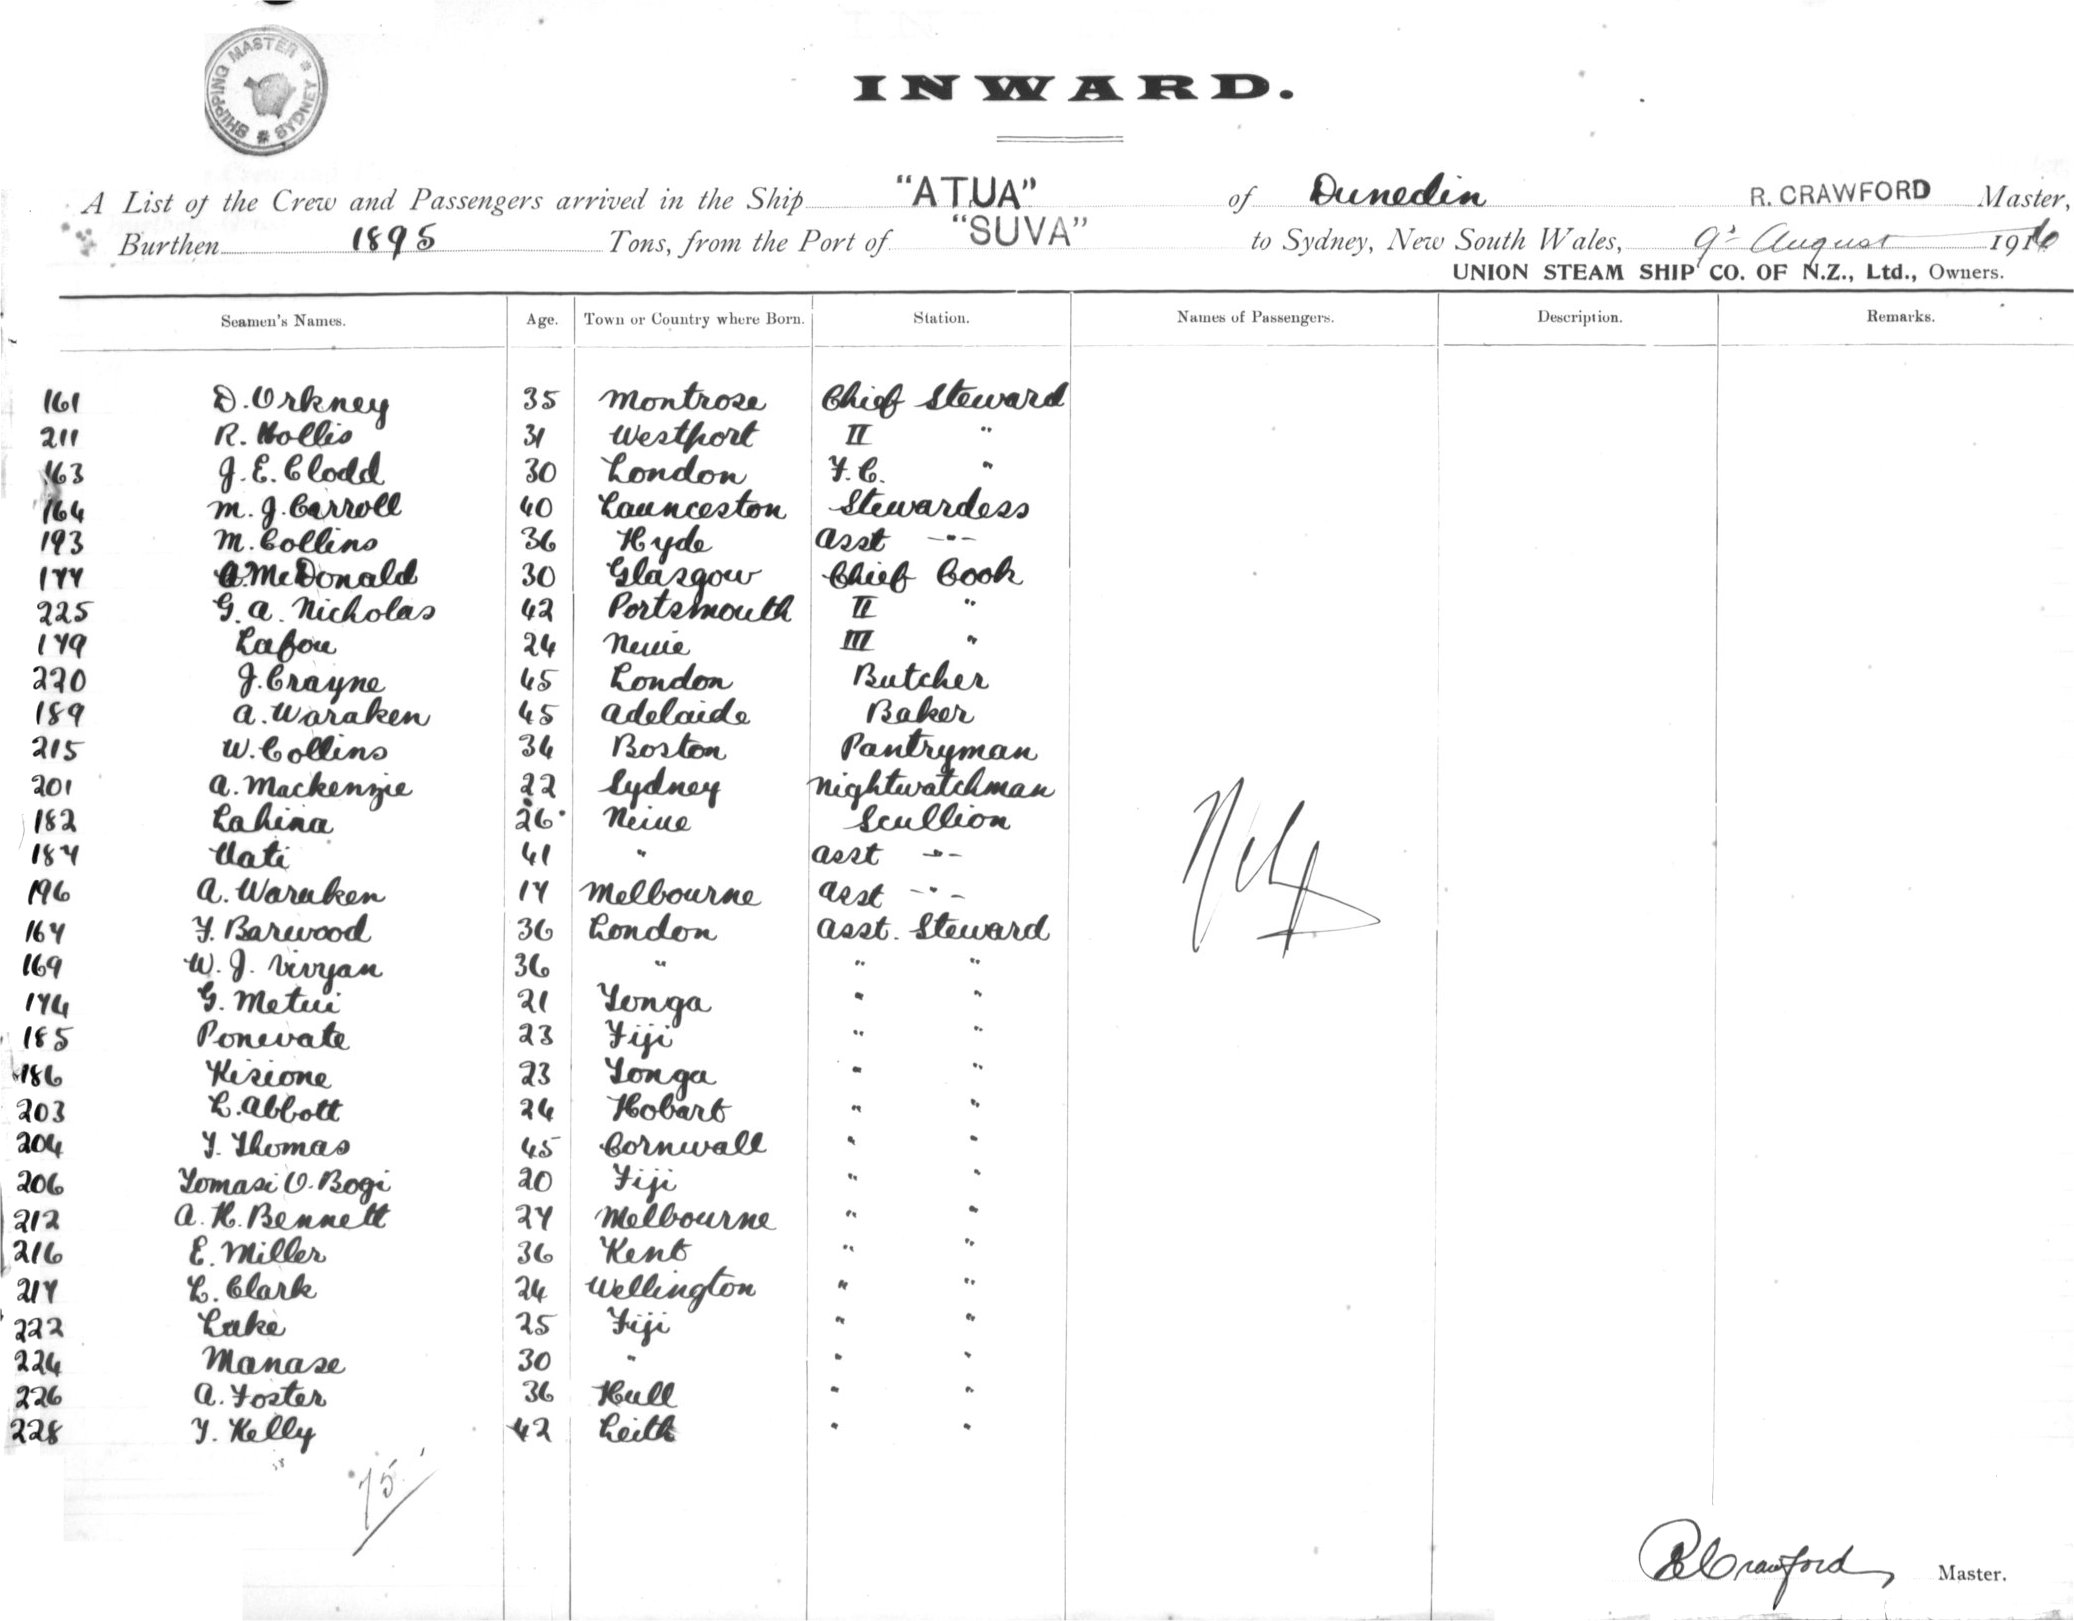 SHIPPING MASTER * SYDNEY *
INWARD.
A List of the Crew and Passengers arrived in the Ship "ATUA" of Dunedin R. CRAWFORD Master,
Burthen 1895 Tons, from the Port of "SUVA" to Sydney, New South Wales, 9th August 1916
UNION STEAM SHIP CO. OF N.Z., Ltd., Owners.
Seamen's Names. Age. Town or Country where Born. Station. Names of Passengers. Description. Remarks.
161 D. Orkney 35 Montrose Chief Steward
211 R. Hollis 31 Westport II "
163 J. E. Clodd 30 London F.C. "
164 M. J. Carroll 40 Launceston Stewardess
193 M. Collins 36 Hyde Asst -"-
177 A. McDonald 30 Glasgow Chief Cook
225 G. A. Nicholas 42 Portsmouth II "
179 Lafou 24 Neiue III "
220 J. Crayne 45 London Butcher
189 A. Waraken 45 Adelaide Baker
215 W. Collins 34 Boston Pantryman
201 A. Mackenzie 22 Sydney Nightwatchman
182 Lahina 26 Neiue Scullion
187 Uati 41 " Asst -"-
196 A. Waraken 17 Melbourne Asst -"-
167 F. Barwood 36 London Asst. Steward
169 W. J. Vivyan 36 " " "
174 G. Metui 21 Tonga " "
185 Ponevate 23 Fiji " "
186 Kisione 23 Tonga " "
203 L. Abbott 24 Hobart " "
204 T. Thomas 45 Cornwall " "
206 Tomasi V. Bogi 20 Fiji " "
212 A. H. Bennett 27 Melbourne " "
216 E. Miller 36 Kent " "
217 L. Clark 24 Wellington " "
222 Lake 25 Fiji " "
224 Manase 30 " " "
226 A. Foster 36 Hull " "
228 T. Kelly 42 Leith " "
75
R Crawford Master.